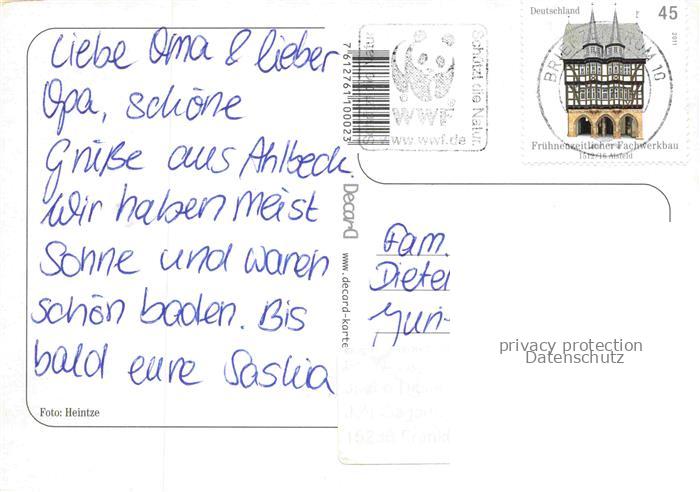 Liebe Oma & lieber
Opa, schöne
Grüße aus Ahlbeck.
Wir haben meist
Sonne und waren
schön baden. Bis
bald eure Saskia
Foto: Heintze
7612761100023
Decard
www.decard-karte
Schützt die Natur.
WWF
www.wwf.de
Deutschland 45
2011
BRIEFZENTRUM 10
Frühneuzeitlicher Fachwerkbau
1512/16 Alsfeld
Fam.
Dieter
Juri-
privacy protection
Datenschutz